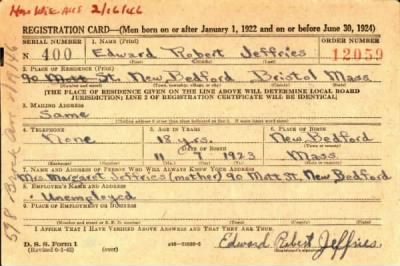 2/16/46
REGISTRATION CARD—(Men born on or after January 1, 1922 and on or before June 30, 1924)
SERIAL NUMBER 1. NAME (Print) ORDER NUMBER
N 400 Edward Robert Jeffries 12059
2. PLACE OF RESIDENCE (Print)
90 Mott St. New Bedford Bristol Mass
(Number and street) (Town, township, village, or city) (County) (State)
[THE PLACE OF RESIDENCE GIVEN ON THE LINE ABOVE WILL DETERMINE LOCAL BOARD
JURISDICTION; LINE 2 OF REGISTRATION CERTIFICATE WILL BE IDENTICAL]
3. MAILING ADDRESS
Same
4. TELEPHONE 5. AGE IN YEARS 6. PLACE OF BIRTH
None 18 yrs. New Bedford
DATE OF BIRTH
11 7 1923 Mass
7. NAME AND ADDRESS OF PERSON WHO WILL ALWAYS KNOW YOUR ADDRESS
Mrs. Margaret Jeffries (mother) 90 Mott St. New Bedford
8. EMPLOYER'S NAME AND ADDRESS
Unemployed
9. PLACE OF EMPLOYMENT OR BUSINESS
I AFFIRM THAT I HAVE VERIFIED ABOVE ANSWERS AND THAT THEY ARE TRUE.
D. S. S. Form 1 (over)
(Revised 6-1-42)
Edward Robert Jeffries